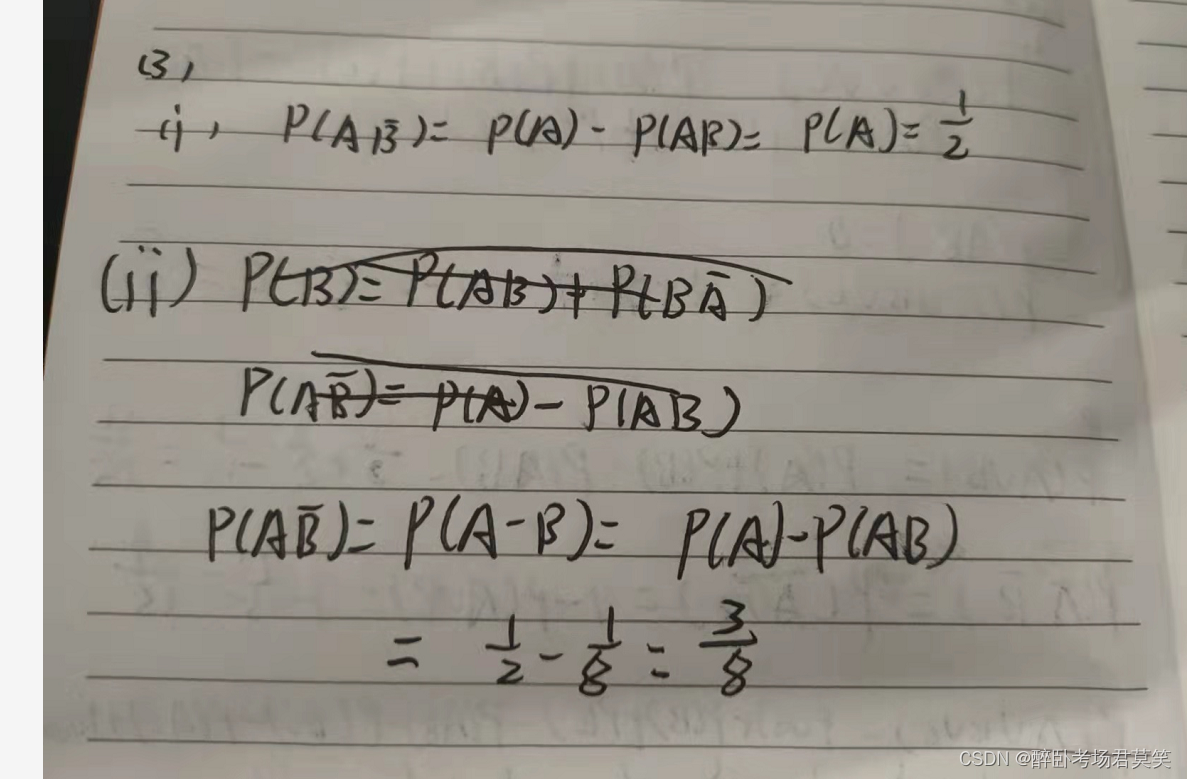 (3),
(i), P(AB̄)= P(A)- P(AB)= P(A)= 1/2
(ii) P(B)= P(AB)+P(BĀ)
P(AB̄)= P(A)- P(AB)
P(AB̄)= P(A-B)= P(A)-P(AB)
= 1/2 - 1/8 = 3/8
CSDN @醉卧考场君莫笑